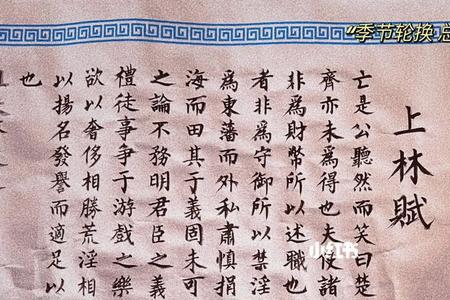 “季节轮换 总
上林賦
亡是公聽然而笑曰楚
齊亦未爲得也夫使諸
非爲財幣所以述職也
者非爲守御所以禁淫
爲東藩而外私肅慎捐
海而田其于義固未可
之論不務明君臣之義
禮徒事爭于游戲之樂
欲以奢侈相勝荒淫相
以揚名發譽而適足以
也
小红书